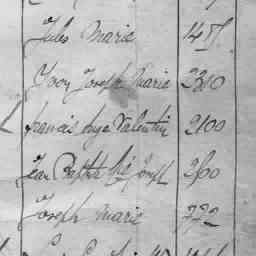 Jules Marie 145
Yvon Joseph Marie 2310
francis Valentin 2100
Jean Baptiste Joseph 2800
Joseph Marie 772